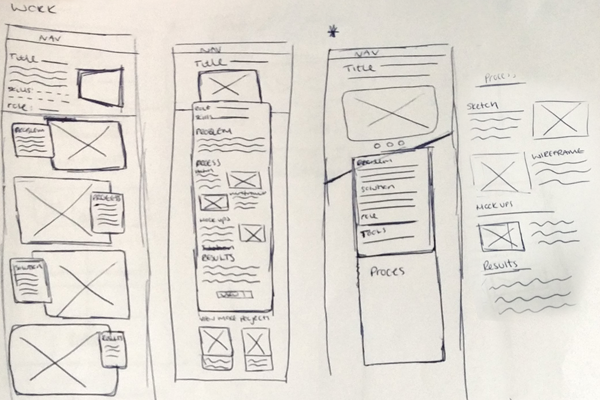 WORK
NAV
Title
SKILLS:
role:
PROBLEM
PROCESS
SOLUTION
RESULTS
NAV
Title
ROLE
SKILLS
PROBLEM
PROCESS
WIREFRAME
MOCK UPS
RESULTS
VIEW MORE PROJECTS
*
NAV
Title
PROBLEM
SOLUTION
ROLE
TOOLS
PROCES
Process
SKETCH
WIREFRAME
MOCK UPS
Results